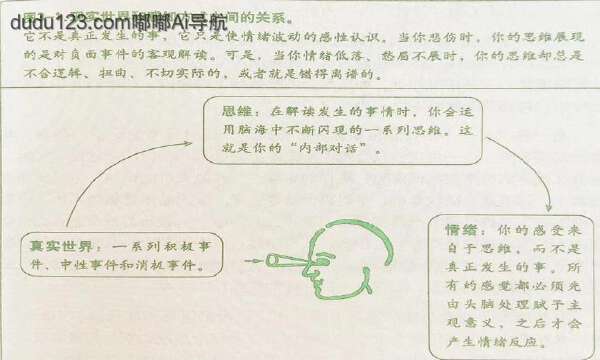 dudu123.com嘟嘟AI导航
真实世界
之间的关系。
它不是真正发生的事，它只是使情绪波动的感性认识。当你悲伤时，你的思维展现
的是对负面事件的客观解读。可是，当你情绪低落、愁眉不展时，你的思维却总是
不合逻辑、扭曲、不切实际的，或者就是错得离谱的。
思维：在解读发生的事情时，你会运
用脑海中不断闪现的一系列思维。这
就是你的“内部对话”。
真实世界：一系列积极事
件、中性事件和消极事件。
情绪：你的感受来
自于思维，而不是
真正发生的事。所
有的感觉都必须先
由头脑处理赋予主
观意义，之后才会
产生情绪反应。